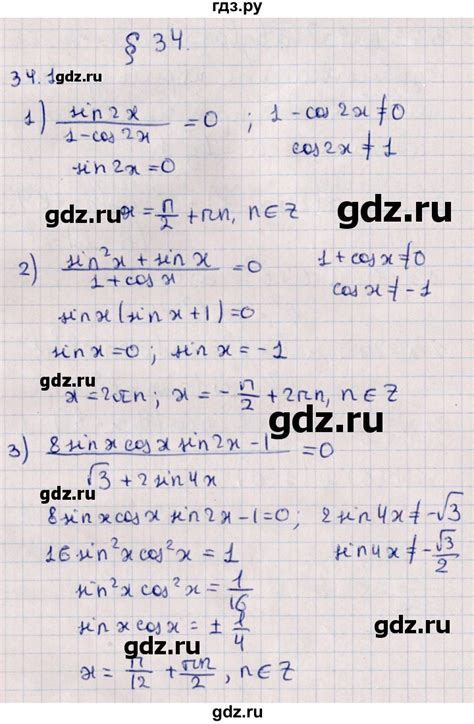 гдз.ру
§ 34.
34.1 gdz.ru
1) sin2x / 1-cos2x = 0 ; 1-cos2x≠0
sin2x=0 cos2x≠1
gdz.ru gdz.ru
x = π/2 + πn, n∈Z
2) sin²x + sin x / 1+cosx = 0 1+cosx≠0
sinx(sinx+1)=0 cosx≠-1
gdz.ru
sinx=0; sinx=-1
x=2πn; x = -π/2 + 2πn, n∈Z
gdz.ru
3) 8sinxcosx sin2x-1 / √3+2sin4x = 0
gdz.ru
8sinxcosx sin2x-1=0; 2sin4x≠-√3
16sin²xcos²x = 1 sin4x≠-√3/2
sin²xcos²x = 1/16
sinxcosx = ± 1/4
gdz.ru gdz.ru
x = π/12 + πn/2, n∈Z
gdz.ru